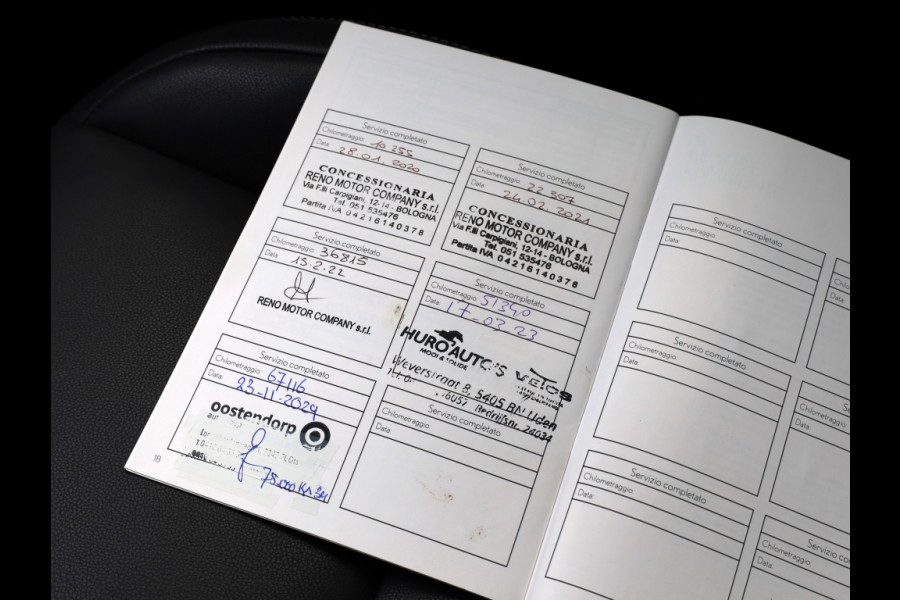 Servizio completato
Chilometraggio: 10 255
Data: 28.01.2020
CONCESSIONARIA
RENO MOTOR COMPANY s.r.l.
Via F.lli Carpigiani, 12-14 - BOLOGNA
Tel. 051 535476
Partita IVA 04216140378
Servizio completato
Chilometraggio: 22 357
Data 24.02.2021
CONCESSIONARIA
RENO MOTOR COMPANY s.r.l.
Via F.lli Carpigiani, 12-14 - BOLOGNA
Tel. 051 535476
Partita IVA 04216140378
Servizio completato
Chilometraggio: 36815
Data 15.2.22
RENO MOTOR COMPANY s.r.l.
Servizio completato
Chilometraggio: 51340
Data: 17-02-23
HURO AUTO'S
MOOI & SOLIDE
velos
Weverstraat 8, 5405 BN Uden
Bedrijfsnr. 24034
Servizio completato
Chilometraggio: 67116
Data: 23-11-2024
oostendorp
75.000 Km
Servizio completato
Chilometraggio:
Data
18
Servizio completato
Chilometraggio:
Data
Servizio completato
Chilometraggio:
Data:
Servizio completato
Chilometraggio:
Data:
Chilometraggio:
Data
Servizio
Chilometraggio:
Data:
Servizio completato
Chilometraggio:
Data: